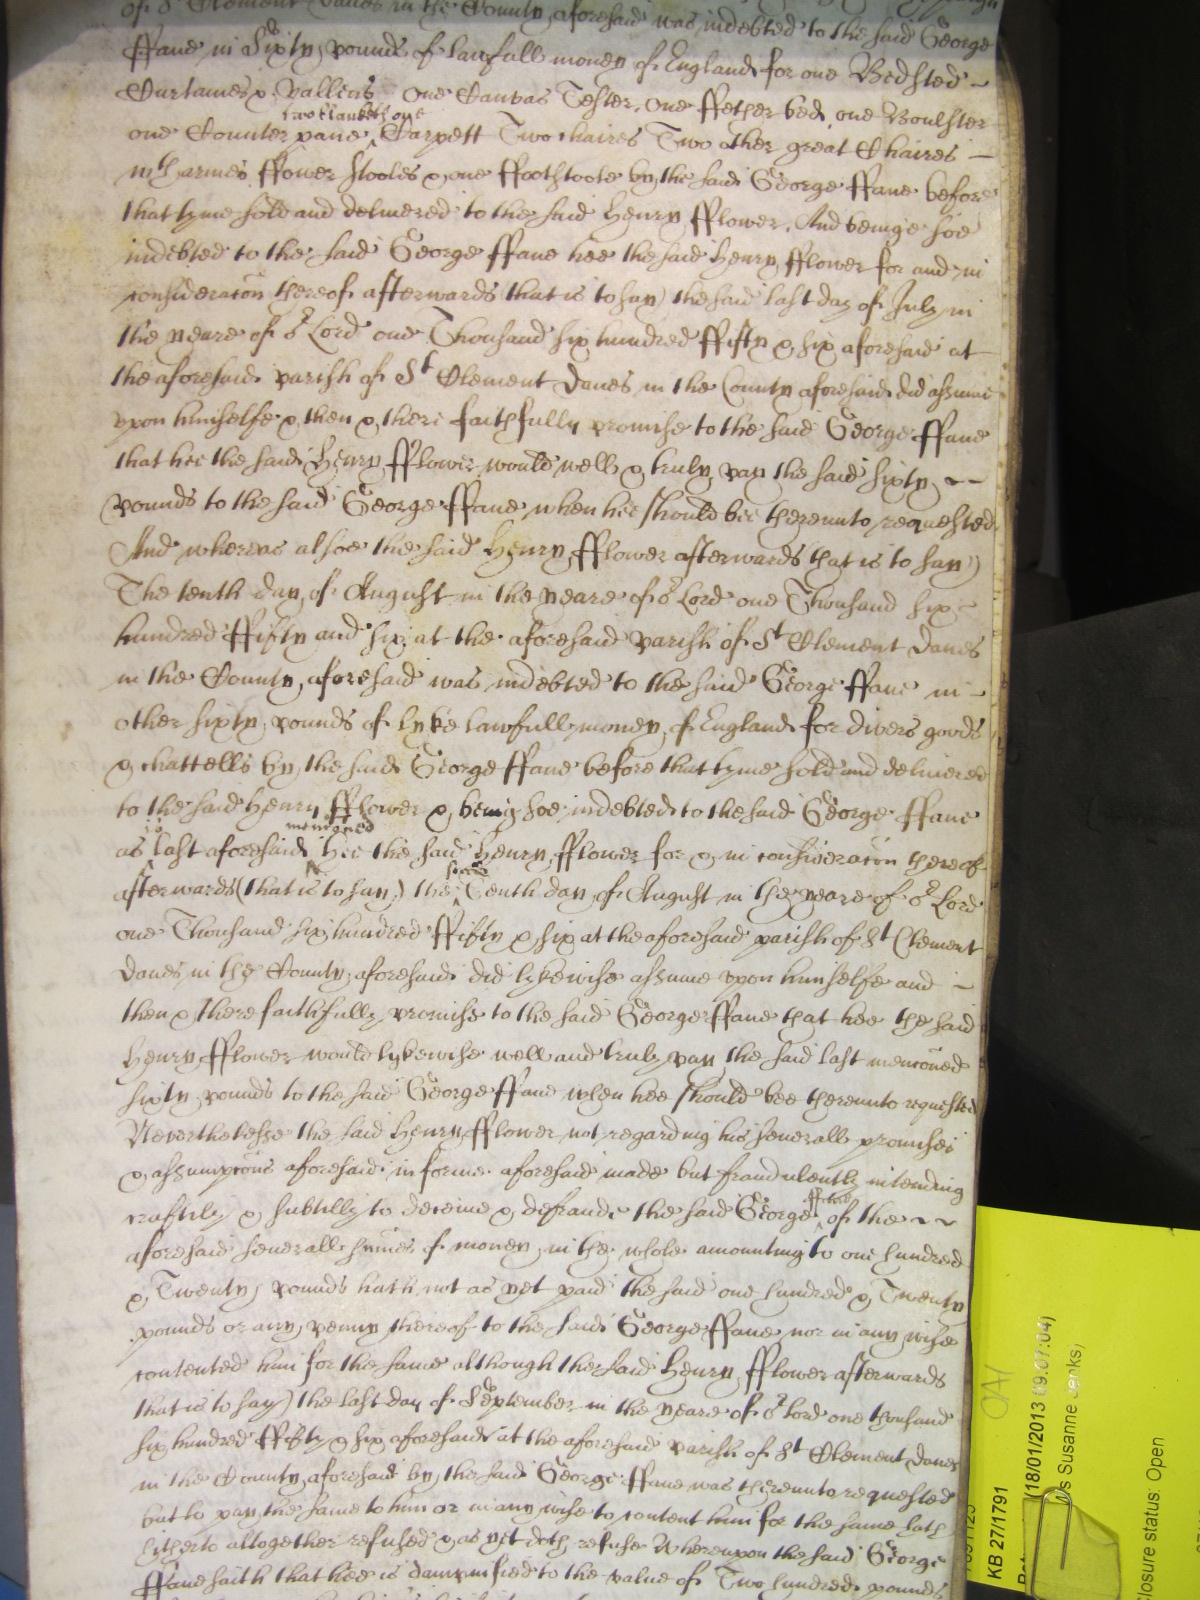 of St Clement Danes in the County aforesaid was indebted to the said George
ffane in Sixty pounds of lawfull money of England for one Bedsted -
Curtaines & Vallens one Canvas Tester, one ffether bed, one Boulster
two blanketts one
one Counter pane Carpett Two chaires Two other great Chaires -
wth armes ffower stooles & one ffootstoole by the said George ffane before
that tyme sold and delivered to the said Henry fflower. And beinge soe
indebted to the said George ffane hee the said Henry fflower for and in
consideracon thereof afterwards (that is to say) the said last day of July in
the yeare of or Lord one Thousand six hundred ffifty & six aforesaid at
the aforesaid parish of St Clement Danes in the County aforesaid did assume
upon himselfe & then & there faithfully promise to the said George ffane
that hee the said Henry fflower would well & truly pay the said sixty ~~
pounds to the said George ffane when hee should bee thereunto requested
And whereas alsoe the said Henry fflower afterwards that is to say)
The tenth day of August in the yeare of or Lord one Thousand six -
hundred ffifty and six at the aforesaid parish of St Clement Danes
in the County aforesaid was indebted to the said George ffane in -
other sixty pounds of lyke lawfull money of England for divers goods
& chattells by the said George ffane before that tyme sold and delivered
to the said Henry fflower & being soe indebted to the said George ffane
is mencioned
as last aforesaid hee the said Henry fflower for & in consideracon thereof
said
afterwards (that is to say) the Tenth day of August in the yeare of or Lord
one Thousand six hundred ffifty & six at the aforesaid parish of St Clement
Danes in the County aforesaid did lykewise assume upon himselfe and -
then & there faithfully promise to the said George ffane that hee the said
Henry fflower would lykewise well and truly pay the said last menconed
sixty pounds to the said George ffane when hee should bee thereunto requested
Neverthelesse the said Henry fflower not regarding his severall promises
& assumpcons aforesaid in forme aforesaid made but fraudulently intending
craftily & subtilly to deceive & defraude the said George ffane of the ~~
aforesaid severall summes of money in the whole amounting to one hundred
& Twenty pounds hath not as yet paid the said one hundred & Twenty
pounds or any penny thereof to the said George ffane nor in any wise
contented him for the same although the said Henry fflower afterwards
that is to say) the last day of September in the yeare of or Lord one thousand
six hundred ffifty & six aforesaid at the aforesaid parish of St Clement Danes
in the County aforesaid by the said George ffane was thereunto requested
but to pay the same to him or in any wise to content him for the same hath
hitherto altogether refused & as yet doth refuse Whereupon the said George
ffane saith that hee is dampnified to the value of Two hundred pounds
KB 27/1791
(18/01/2013 09:07:04)
s Susanne
losure status: Open